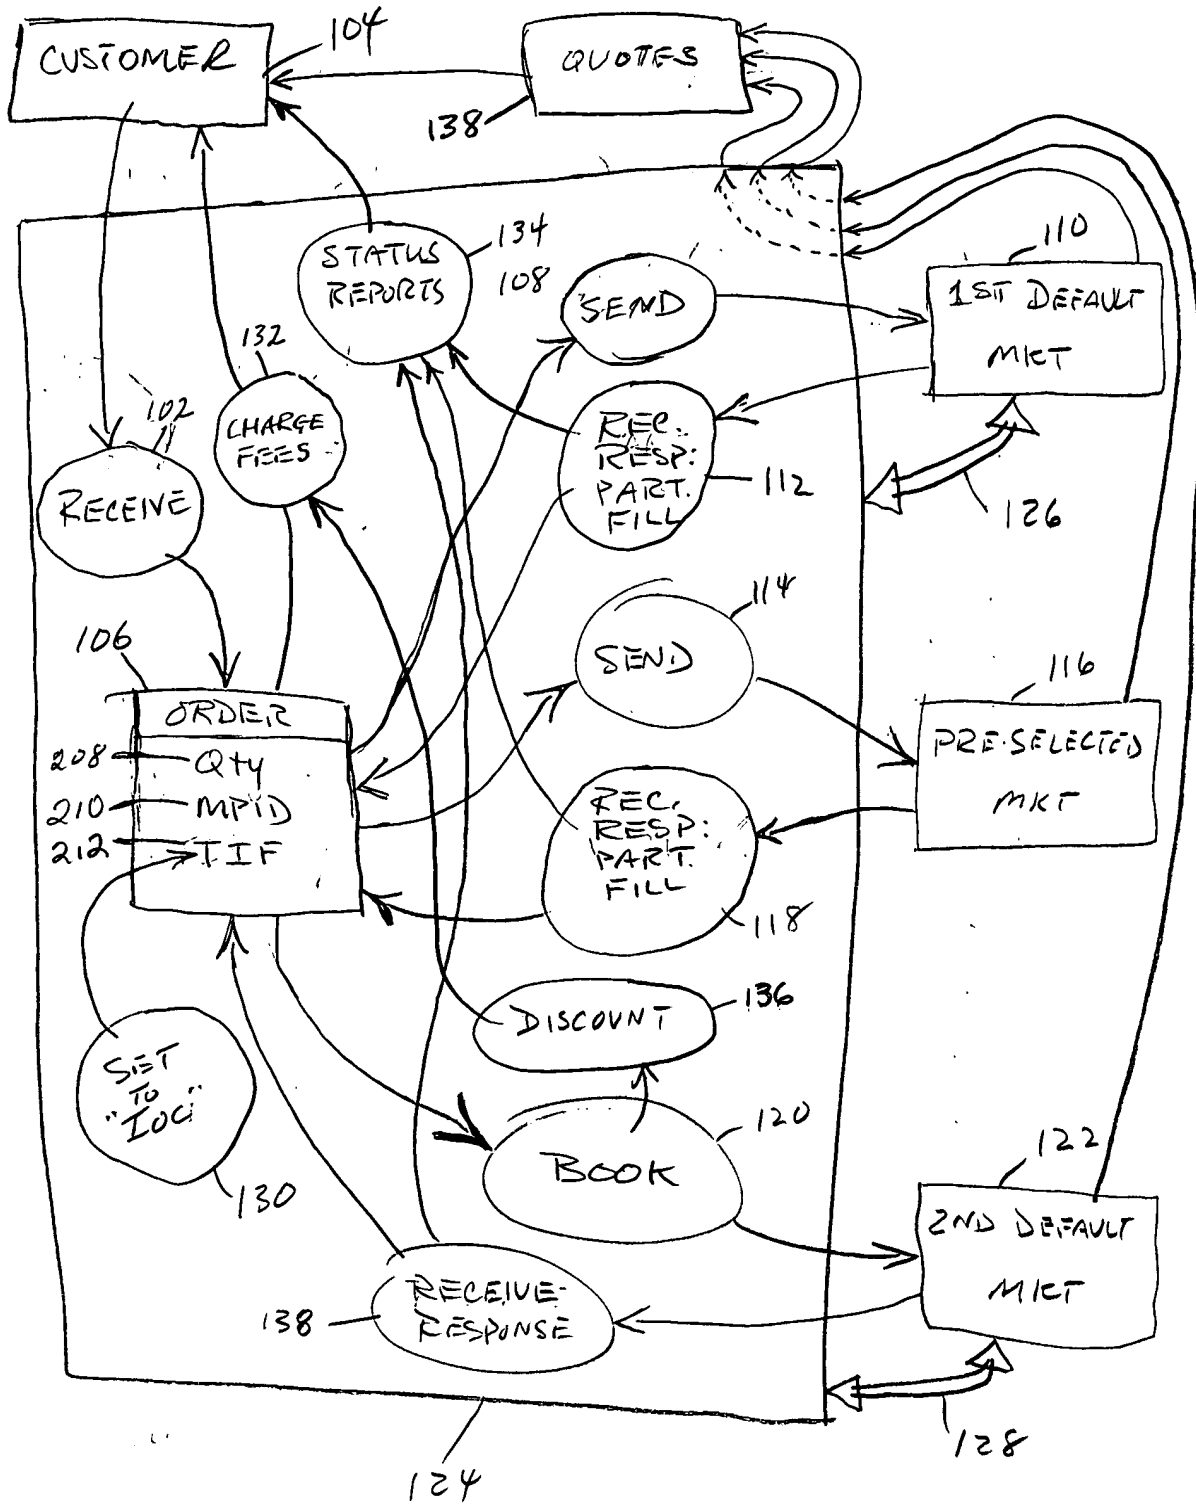 CUSTOMER
104
QUOTES
138
STATUS
REPORTS
134
108
SEND
110
1ST DEFAULT
MKT
132
CHARGE
FEES
102
RECEIVE
REC.
RESP:
PART.
FILL
112
126
114
SEND
106
ORDER
208
Qty
210
MPID
212
TIF
116
PRE-SELECTED
MKT
REC.
RESP:
PART.
FILL
118
DISCOUNT
136
SET
TO
"IOC"
130
BOOK
120
122
2ND DEFAULT
MKT
RECEIVE
RESPONSE
138
128
124